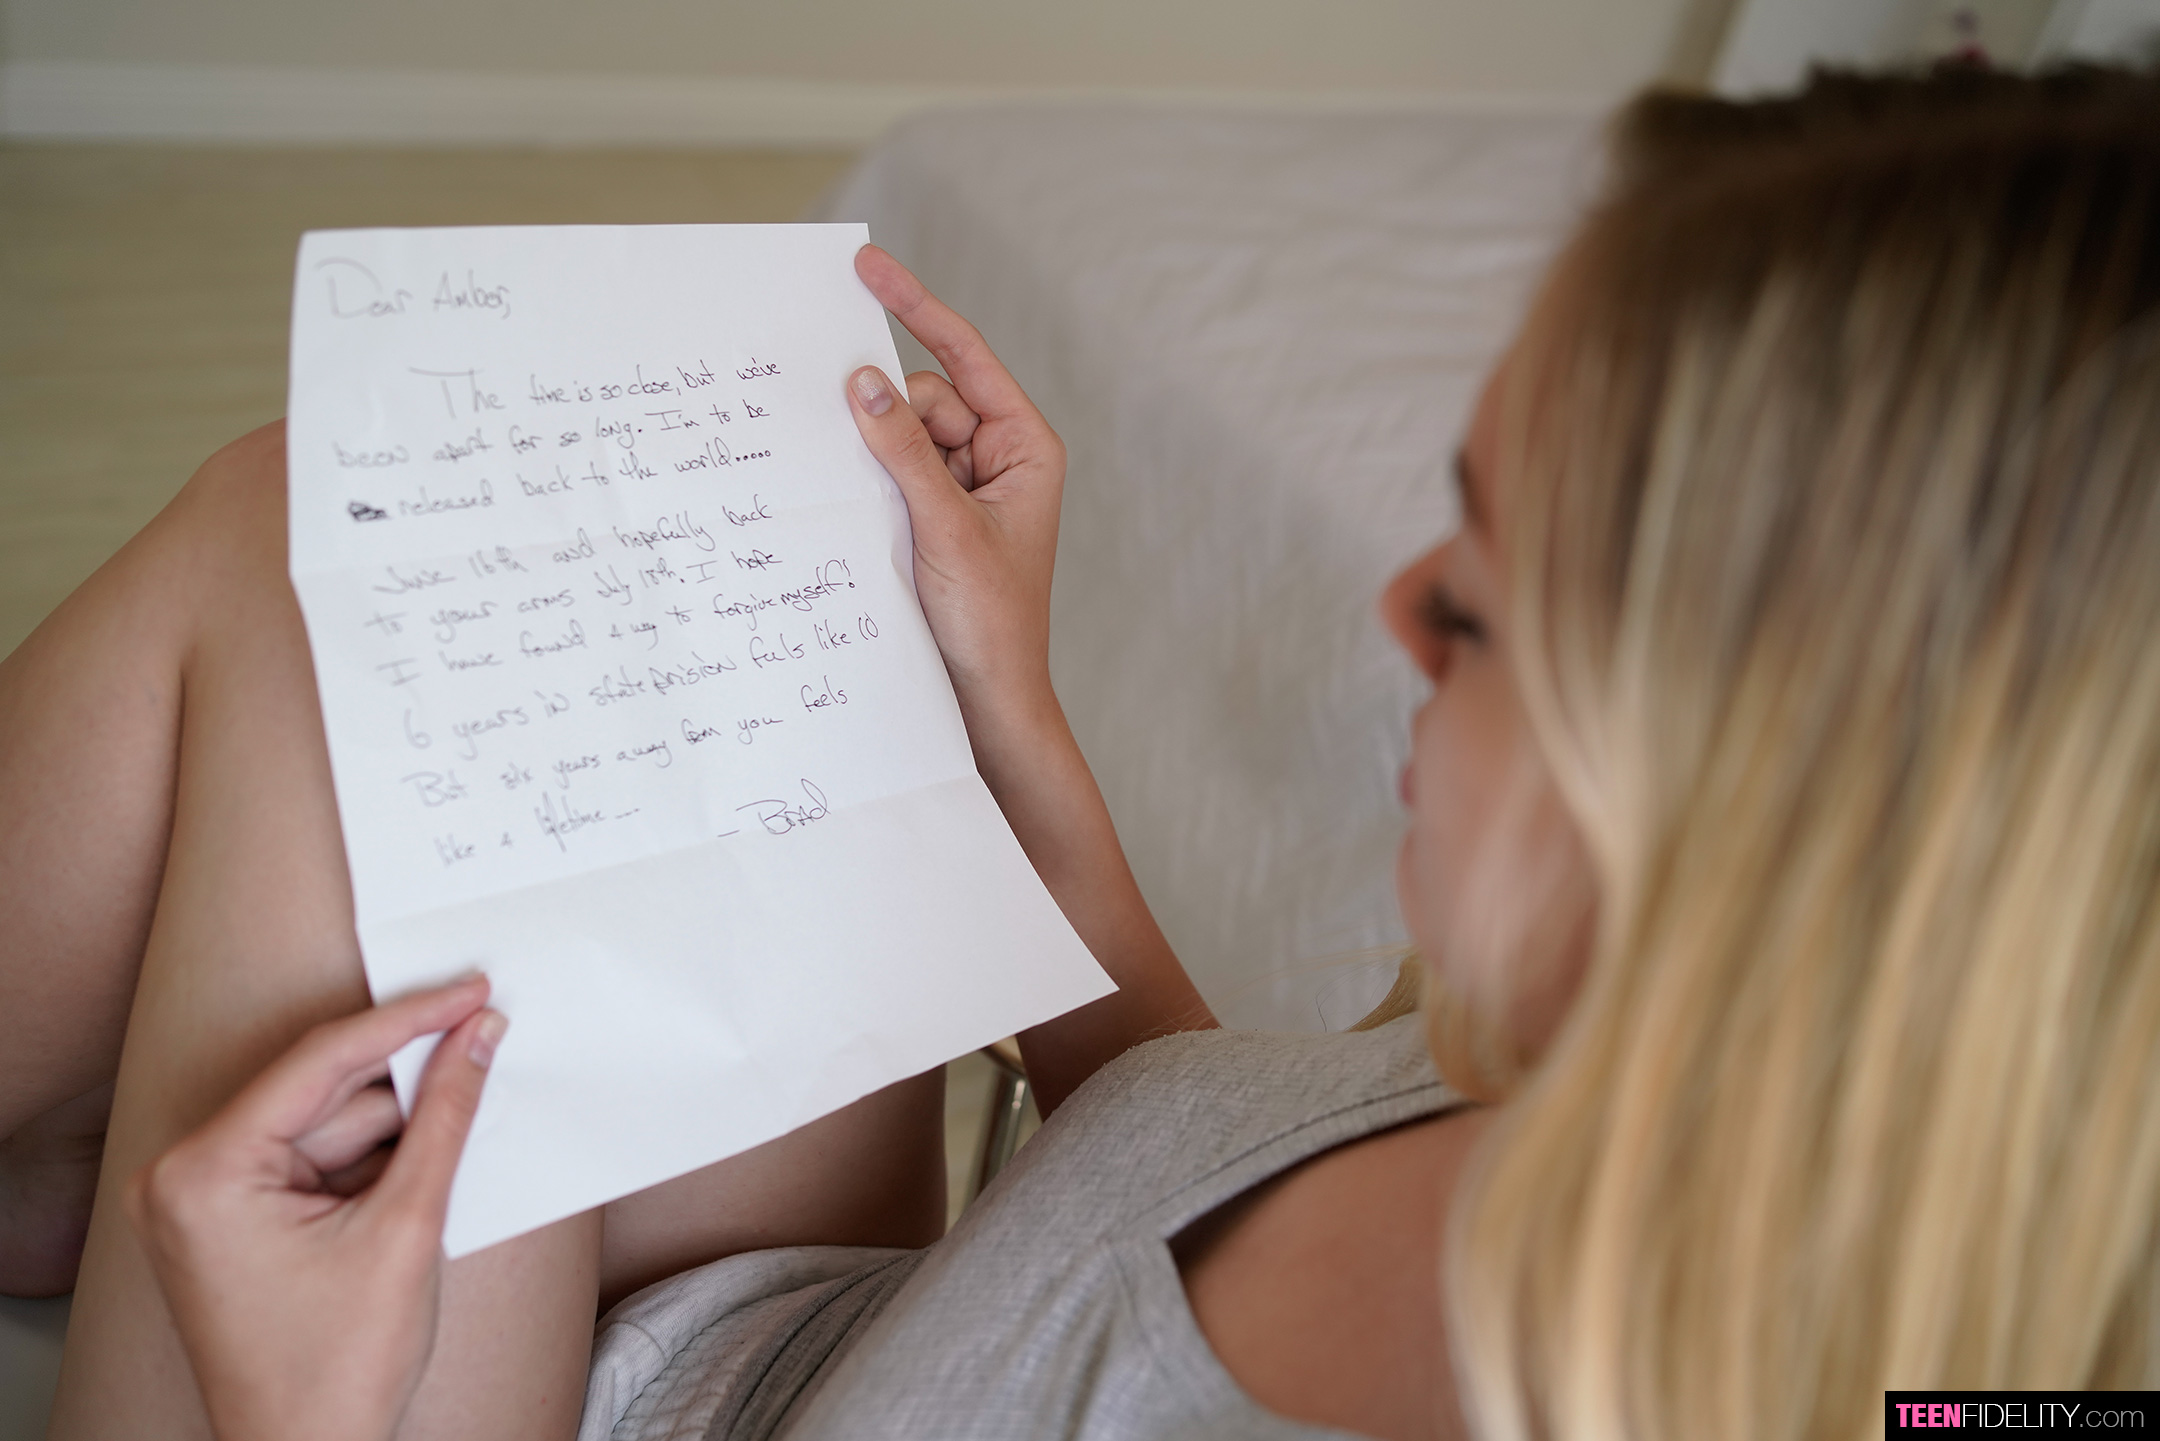 Dear Amber,
The time is so close, but we've
been apart for so long. I'm to be
released back to the world.....
June 16th and hopefully back
to your arms July 18th. I hope
I have found a way to forgive myself!
6 years in state prision feels like 10
But six years away from you feels
like a lifetime....
- Brad
TEENFIDELITY.com